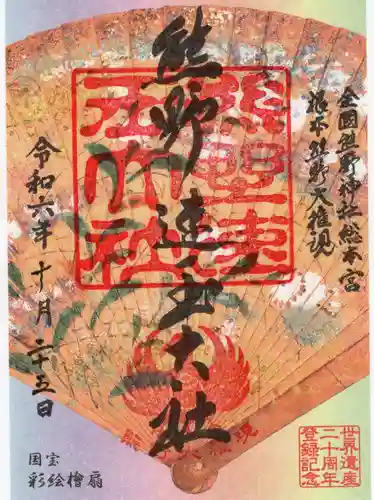 全国熊野神社総本宮
根本熊野大権現
熊野速玉大社
令和六年十月二十五日
国宝
彩絵檜扇
世界遺産
二十周年
登録記念